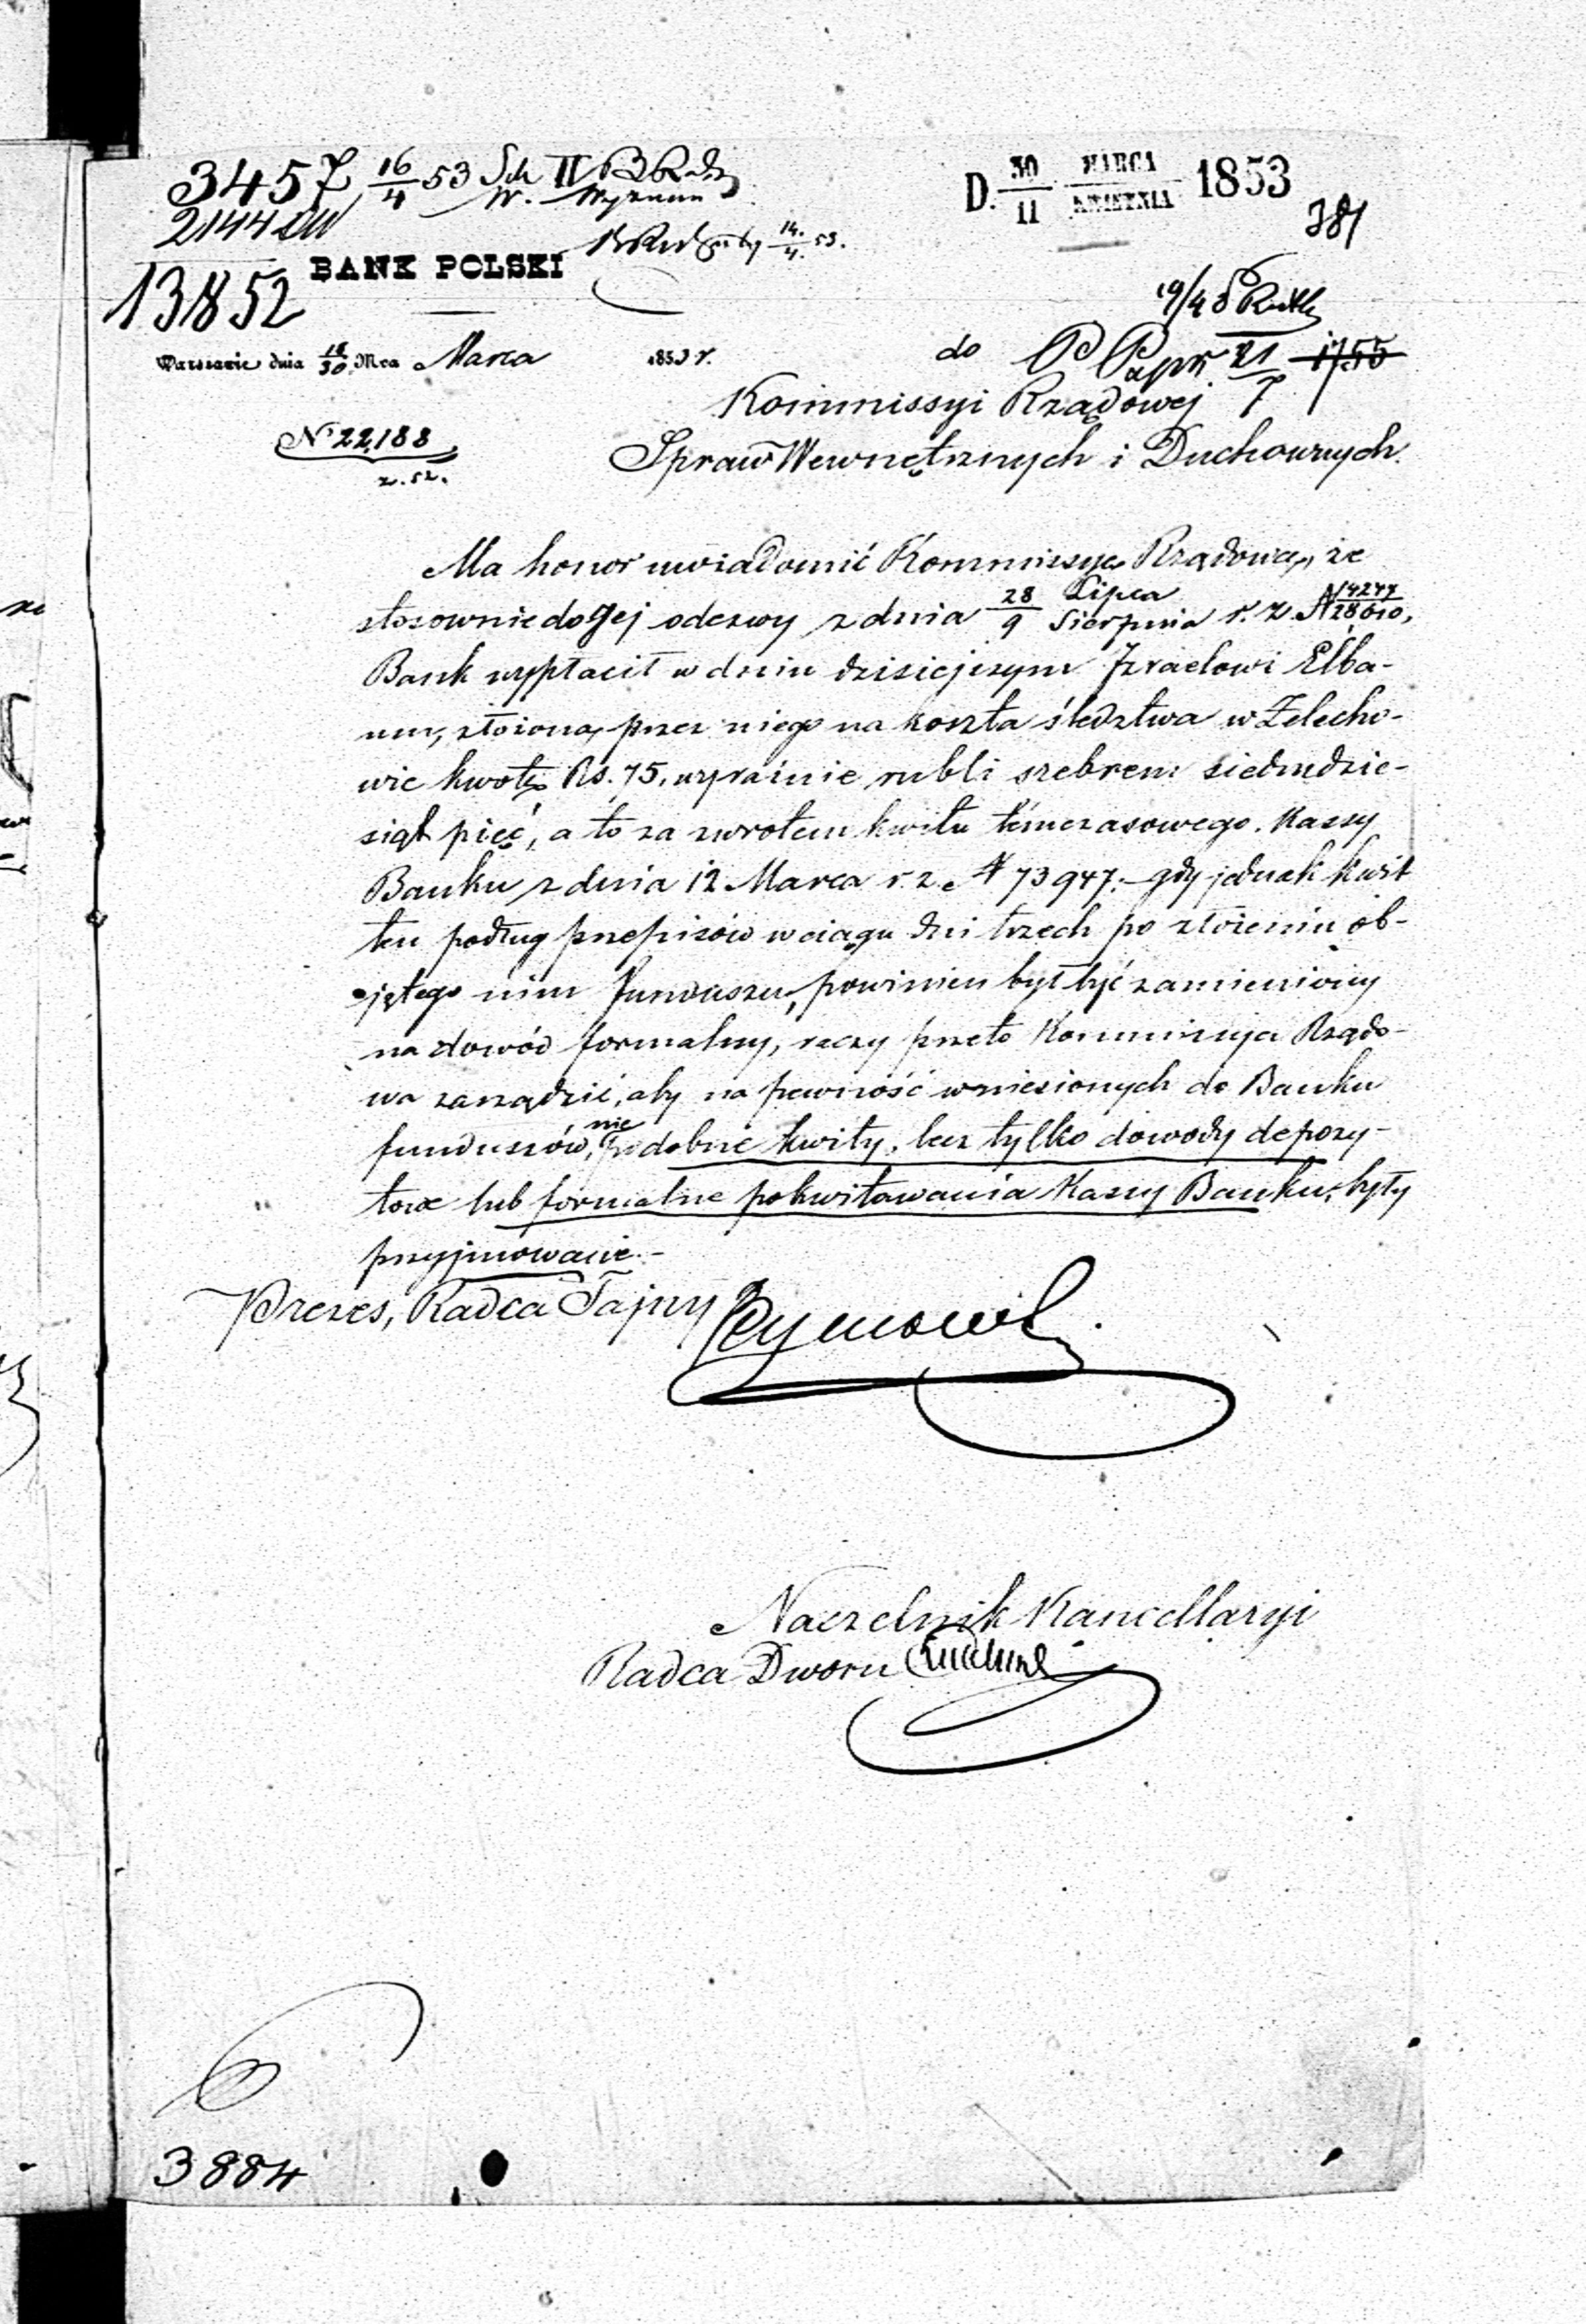 3457 16/4 53 II
D. 30/11 MARCA/KWIETNIA 1853
2144
381
14/4 53.
BANK POLSKI
13852
19/4
Warszawie dnia 18/30 Mca Marca 1853 r.
do
21/7 1755
Kommissyi Rządowej
N 22,188
z. 52.
Spraw Wewnętrznych i Duchownych.
Ma honor uwiadomić Kommissyę Rządową, że
stosownie do Jej odezwy z dnia 28/9 Lipca/Sierpnia r. z. N 4277/28610,
Bank wypłacił w dniu dzisiejszym Izraelowi Elba-
um, złożoną przez niego na koszta śledztwa w Żelecho-
wie kwotę Rs. 75, wyraźnie rubli srebrem siedmdzie-
siąt pięć, a to za zwrotem kwitu témczasowego Kassy
Banku z dnia 12 Marca r. z. N 73947; – gdy jednak kwit
ten podług przepisów w ciągu dni trzech po złożeniu ob-
jętego nim funduszu, powinien był być zamieniony
na dowód formalny, raczy przeto Kommissya Rządo-
wa zarządzić, aby na pewność wniesionych do Banku
funduszów, nie podobne kwity, lecz tylko dowody depozy-
towe lub formalne pokwitowania Kassy Banku, były
przyjmowane. –
Prezes, Radca Tajny
Naczelnik Kancellaryi
Radca Dworu
3884